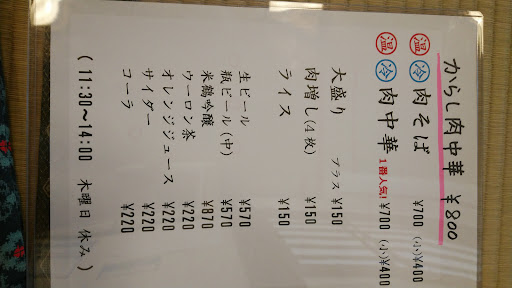 からし肉中華 ¥800
温 冷 肉そば ¥700 (小)¥400
温 冷 肉中華 1番人気! ¥700 (小)¥400
大盛り プラス ¥150
肉増し(4枚) ¥150
ライス ¥150
生ビール ¥570
瓶ビール(中) ¥570
米鶴吟醸 ¥870
ウーロン茶 ¥220
オレンジジュース ¥220
サイダー ¥220
コーラ ¥220
(11:30~14:00 木曜日 休み)